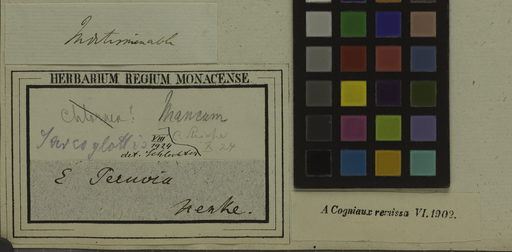 Indeterminable
HERBARIUM REGIUM MONACENSE
Chloraea? Mancum
Sarcoglottis
VIII
1920
det. Schlechter
E Peruvia
Henke.
A Cogniaux revissa VI. 1902.